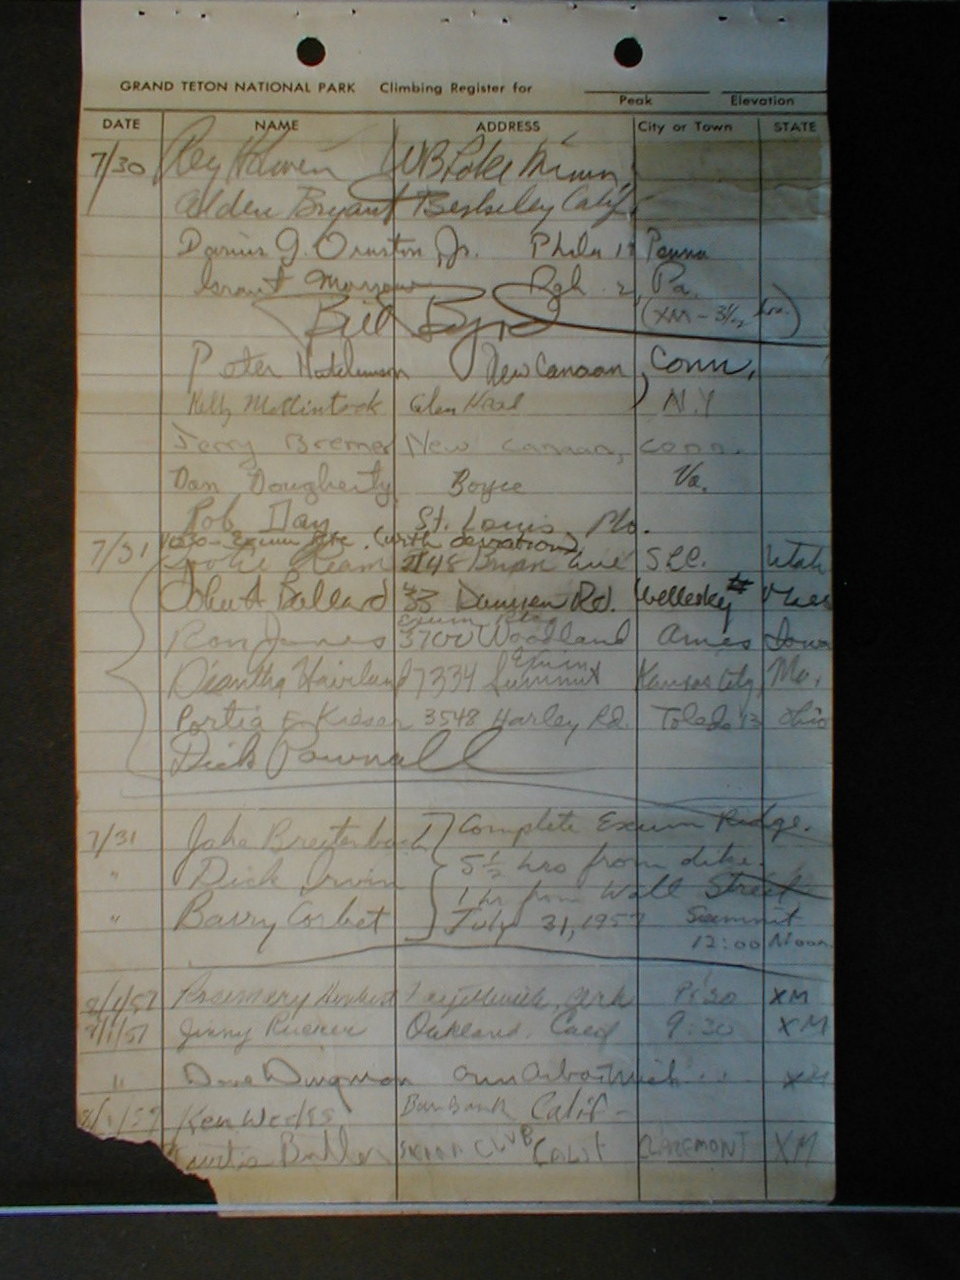 GRAND TETON NATIONAL PARK Climbing Register for
Peak Elevation
DATE NAME ADDRESS City or Town STATE
7/30 Ray W B Lake Minn
Alden Bryant Berkeley Calif
Darius G. Ornston Jr. Phila 17 Penna
Grant Morrow Pgh. 2, Pa.
Bill Byrd (XM - 3½ hrs.)
Peter New Canaan, Conn.
Kelly McClintock Glen Head N.Y
Jerry Bremer New Canaan, Conn.
Dan Dougherty Boyce Va.
Rob Day St. Louis Mo.
7/31 Exum rte. (with deviations)
2148 Ave SLC. Utah
Ballard 33 Rd. Wellesley Mass
Exum Rte
Ron James 3700 Woodland Ames Iowa
Exum
Diantha Haviland 7334 Summit Kansas City, Mo.
Portia E Kieser 3548 Harley Rd. Toledo 13 Ohio
Dick Pownall
7/31 Jake Breitenbach Complete Exum Ridge.
" Dick Irwin 5½ hrs from dike.
1 hr from Wall Street
" Barry Corbet July 31, 1957 Summit
12:00 Noon
8/1/57 Rosemary Fayetteville, Ark XM
8/1/57 Jinny Oakland, Calif 9:30 XM
" Dave Dingman Ann Arbor Mich XM
8/1/57 Ken Weeks Burbank Calif -
Curtis Butler CLUB CALIF CLAREMONT XM